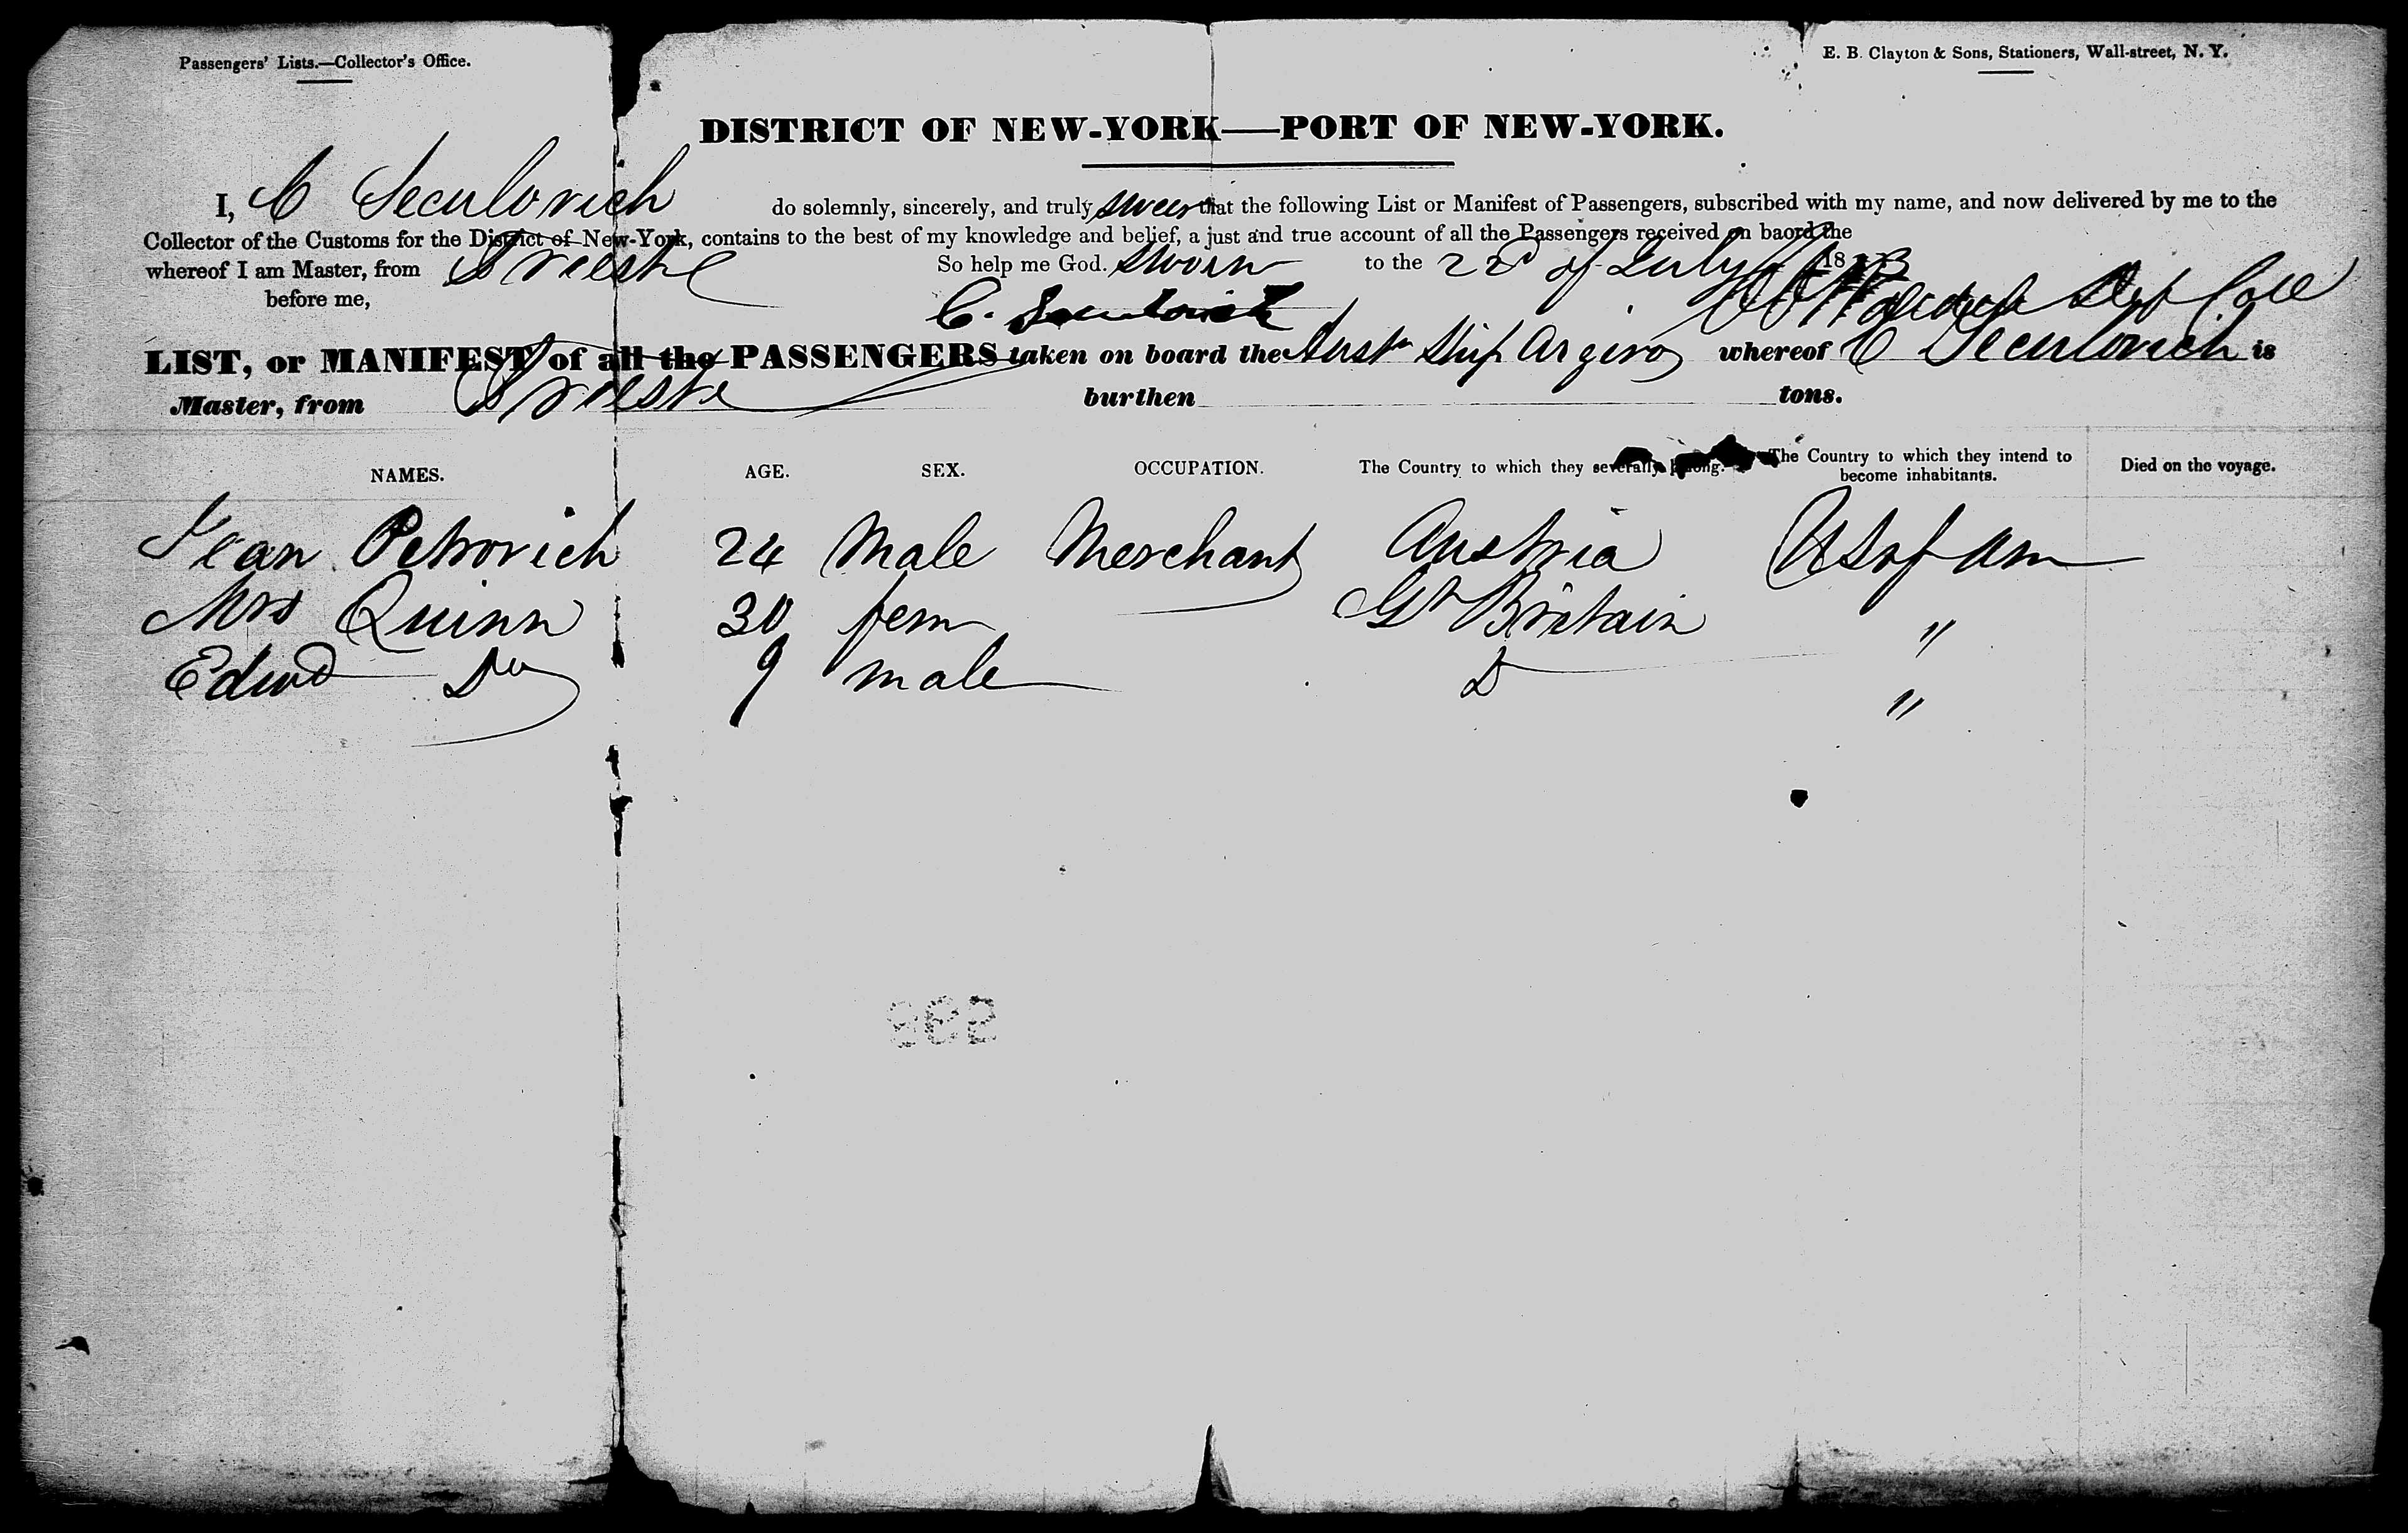 Passengers' Lists.—Collector's Office.
E. B. Clayton & Sons, Stationers, Wall-street, N. Y.
DISTRICT OF NEW-YORK—PORT OF NEW-YORK.
I, C Seculovich do solemnly, sincerely, and truly swear that the following List or Manifest of Passengers, subscribed with my name, and now delivered by me to the
Collector of the Customs for the District of New-York, contains to the best of my knowledge and belief, a just and true account of all the Passengers received on baord the
whereof I am Master, from Trieste So help me God. Sworn to the 22d of July 18
before me, Dep Coll
C. Seculovich
LIST, or MANIFEST of all the PASSENGERS taken on board the Austn Ship Argiro whereof C Seculovich is
Master, from Trieste burthen tons.
NAMES. AGE. SEX. OCCUPATION. The Country to which they severally belong. The Country to which they intend to become inhabitants. Died on the voyage.
Ivan Petrovich 24 Male Merchant Austria US of Am
Mrs Quinn 30 fem Gt Britain "
Edwd Do 9 male D "